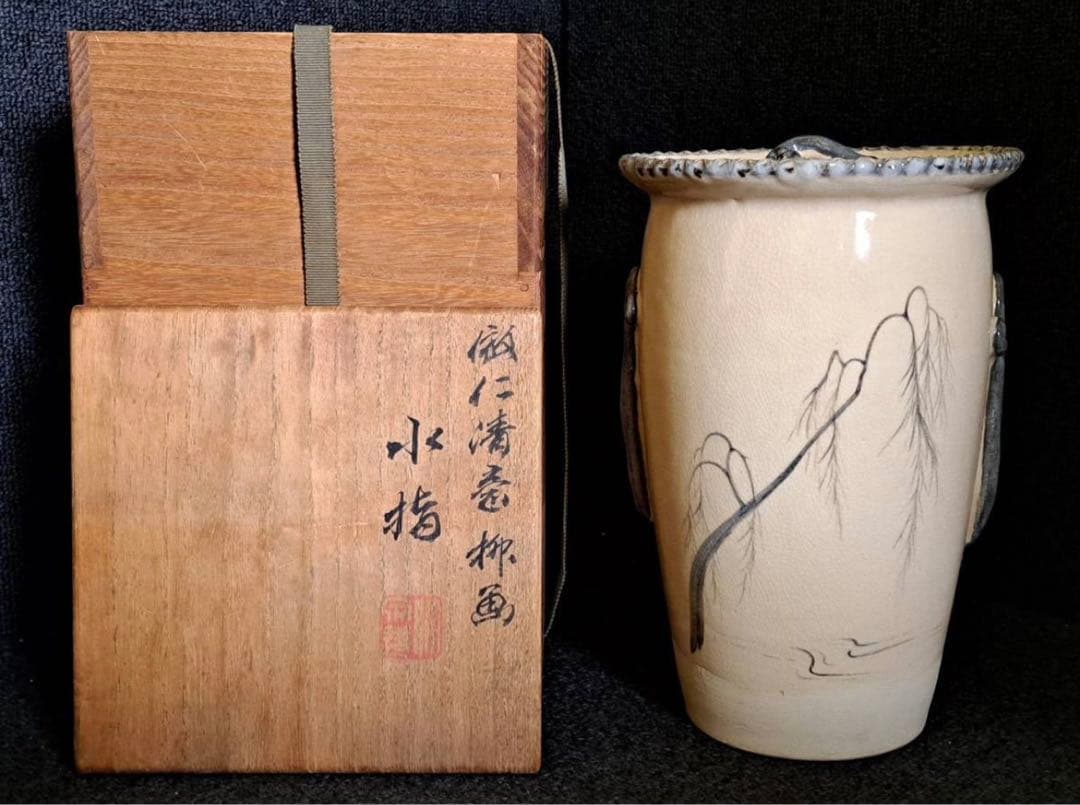 倣仁清意柳画
水指